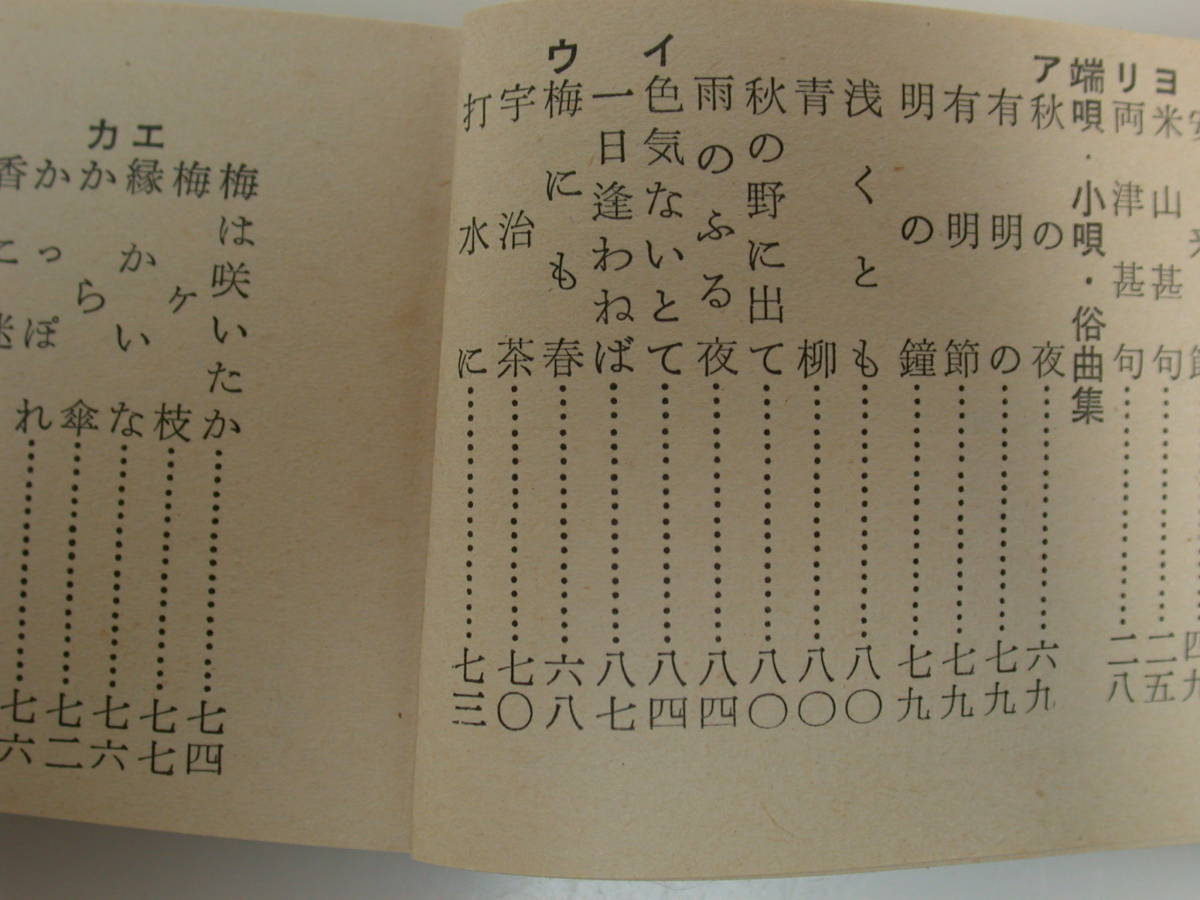 安来節……四九
ヨ 米山甚句……二五
リ 両津甚句……二八
端唄・小唄・俗曲集
ア 秋の夜……六九
有明の……七九
有明節……七九
明の鐘……七九
浅くとも……八〇
青柳……八〇
秋の野に出て……八〇
雨のふる夜……八四
イ 色気ないとて……八四
一日逢わねば……八七
ウ 梅にも春……六八
宇治茶……七〇
打水に……七三
梅は咲いたか……七四
梅ヶ枝……七七
エ 縁かいな……七六
カ から傘……七二
かっぽれ……七六
香に迷